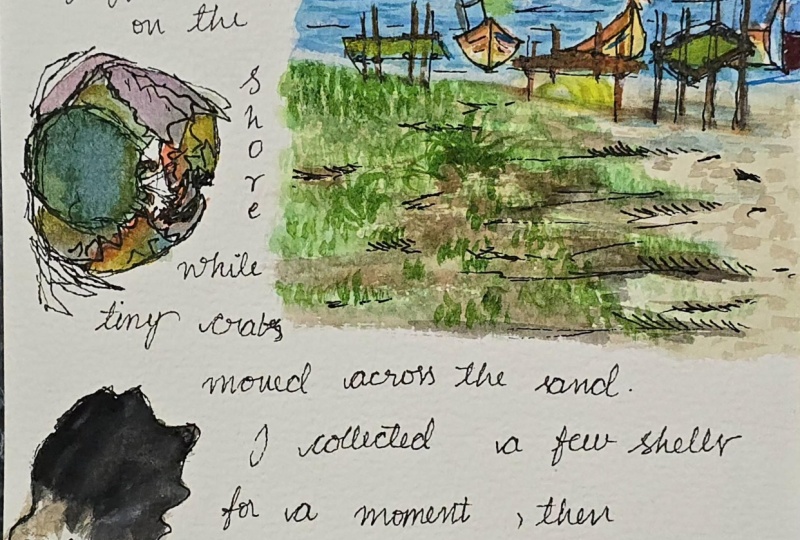 on the
shore
while
tiny crabs
moved across the sand.
I collected a few shells
for a moment, then